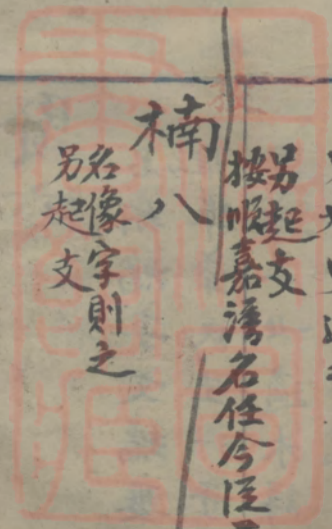 另起支
按順嘉譜名任今從
楠八
名像字則之
另起支